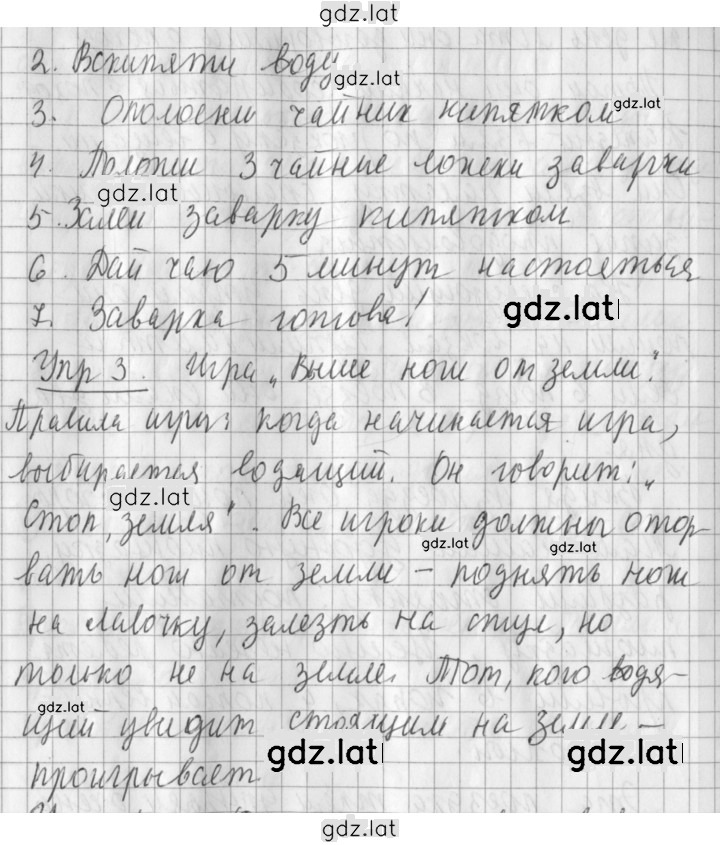 gdz.lat
2. Вскипяти воду
gdz.lat
3. Ополосни чайник кипятком
gdz.lat
4. Положи 3 чайные ложки заварки
gdz.lat
5. Залей заварку кипятком
6. Дай чаю 5 минут настояться
7. Заварка готова!
gdz.lat
Упр 3. Игра „Выше ноги от земли".
Правила игры: когда начинается игра,
выбирается водящий. Он говорит: „
gdz.lat
Стоп, земля". Все игроки должны отор-
gdz.lat
gdz.lat
вать ноги от земли – поднять ноги
на лавочку, залезть на стул, но
только не на земле. Тот, кого водя-
gdz.lat
щий увидит стоящим на земле –
gdz.lat
gdz.lat
проигрывает
gdz.lat